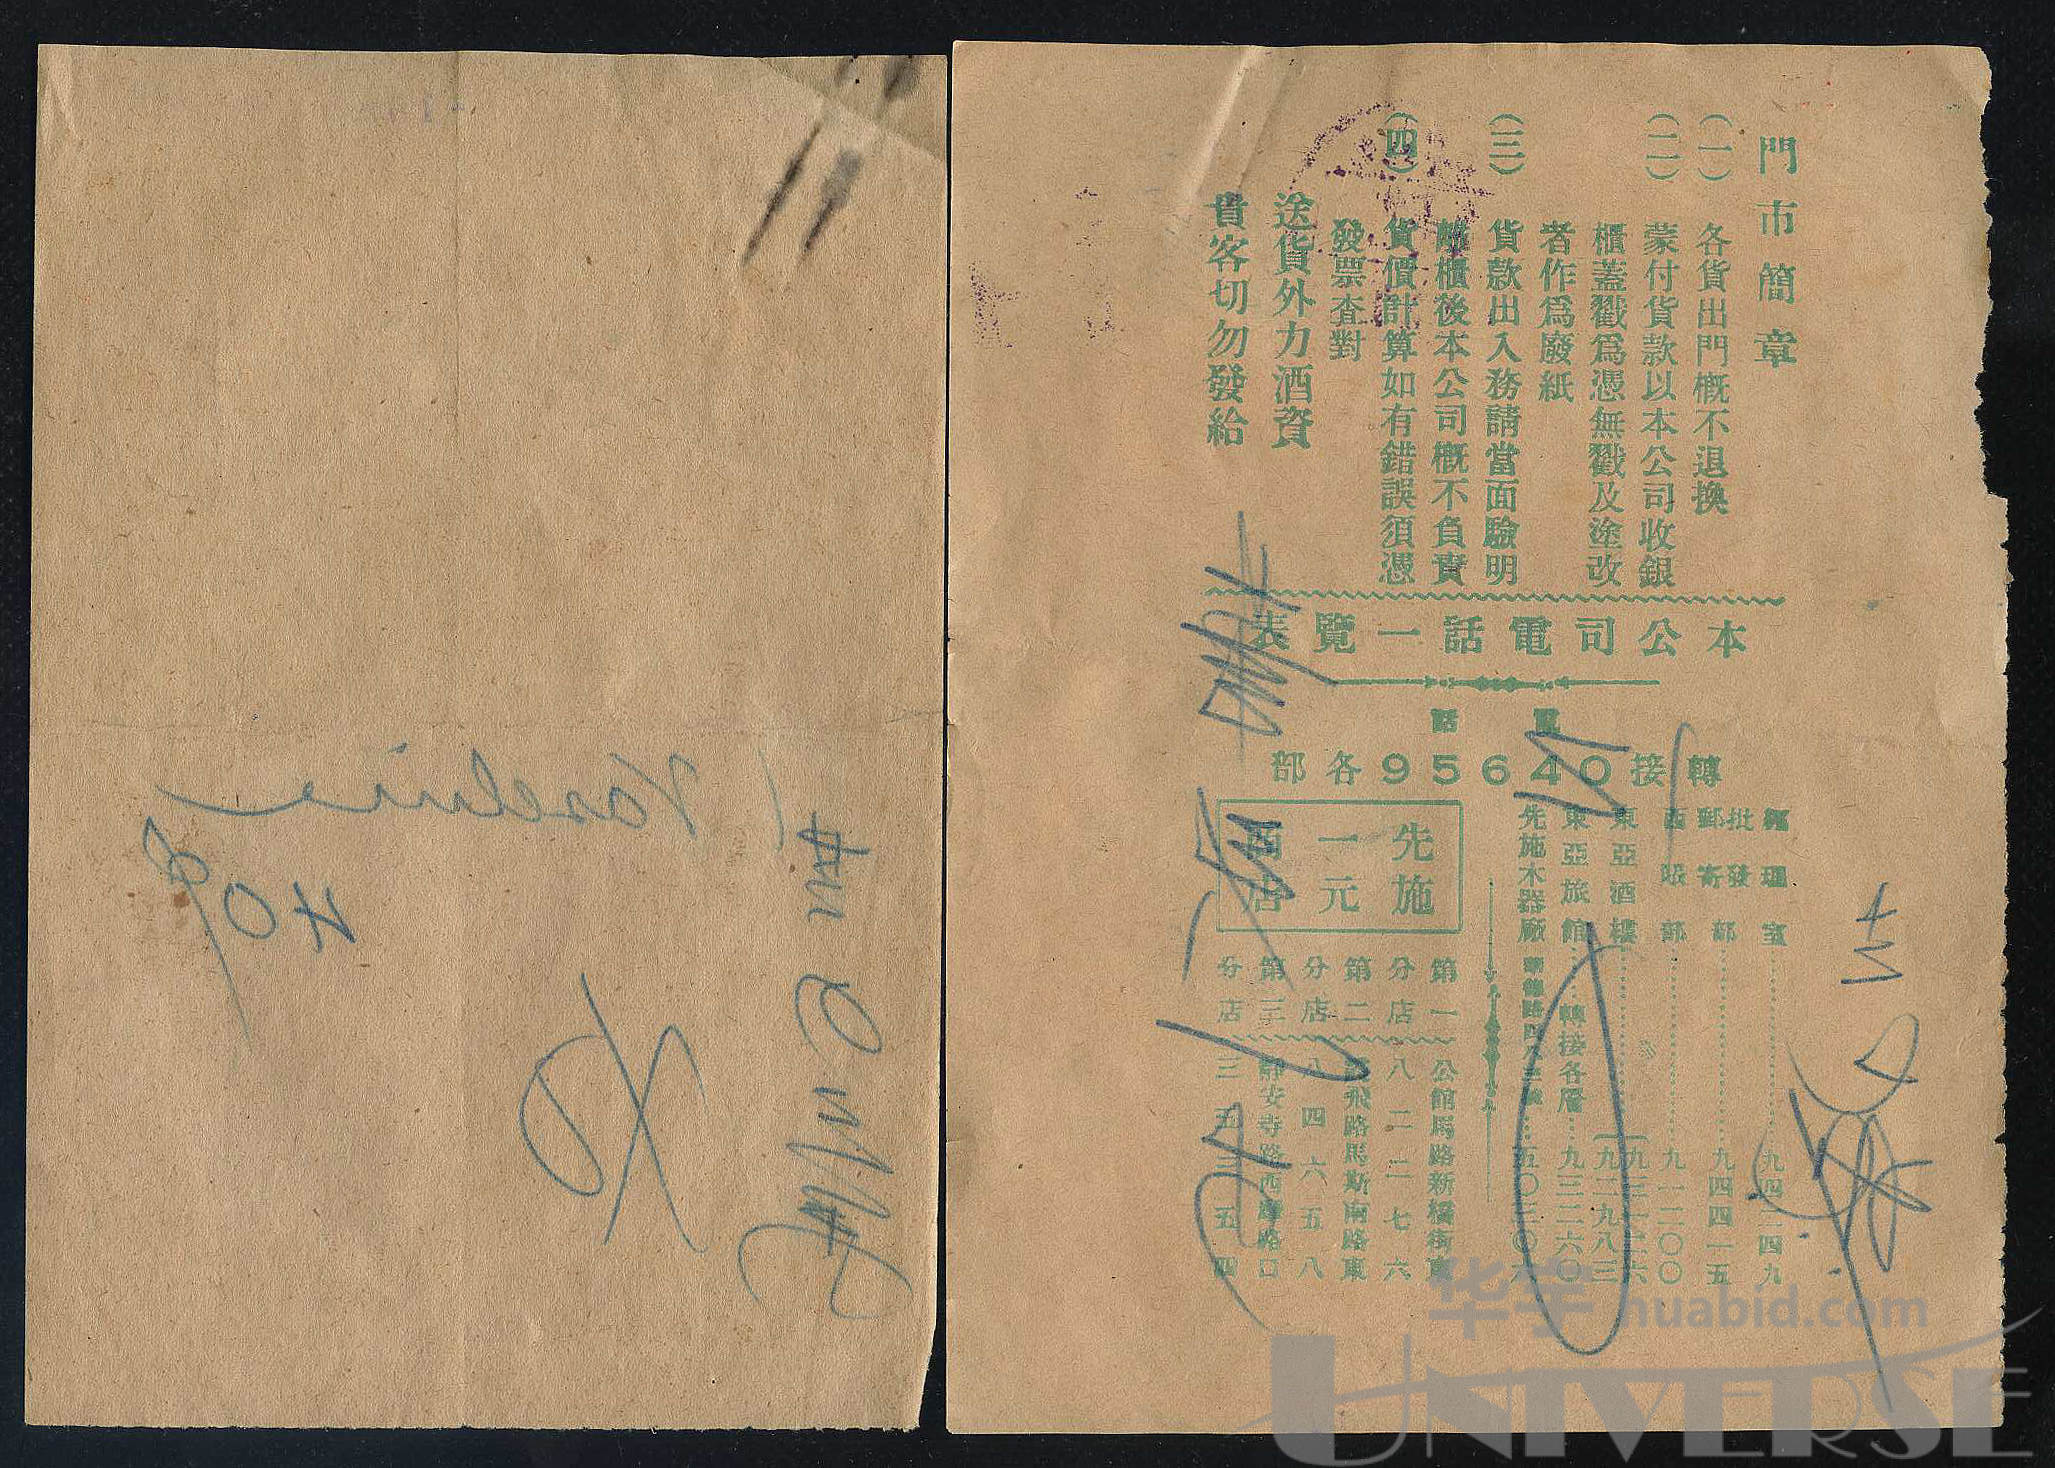 門市簡章
(一) 各貨出門概不退換
(二) 蒙付貨款以本公司收銀
櫃蓋戳爲憑無戳及塗改
者作爲廢紙
(三) 貨款出入務請當面驗明
離櫃後本公司概不負責
(四) 貨價計算如有錯誤須憑
發票查對
送貨外力酒資
貴客切勿發給
本公司電話一覽表
電話
轉接95640各部
經理室……九四二四九
批發部
郵寄部……九四四一五
西服部……九一二〇〇
東亞酒樓……九三一二六
九二九八三
東亞旅館……轉接各層……九三二六〇
先施木器廠……五〇三〇六
先施
一元
商店
第一分店 公館馬路新橋街東
八二二七六
第二分店 霞飛路馬斯南路東
八四六五八
第三分店 靜安寺路西摩路口
三五三五四
Vaseline
40
华宇 huabid.com
UNIVERSE